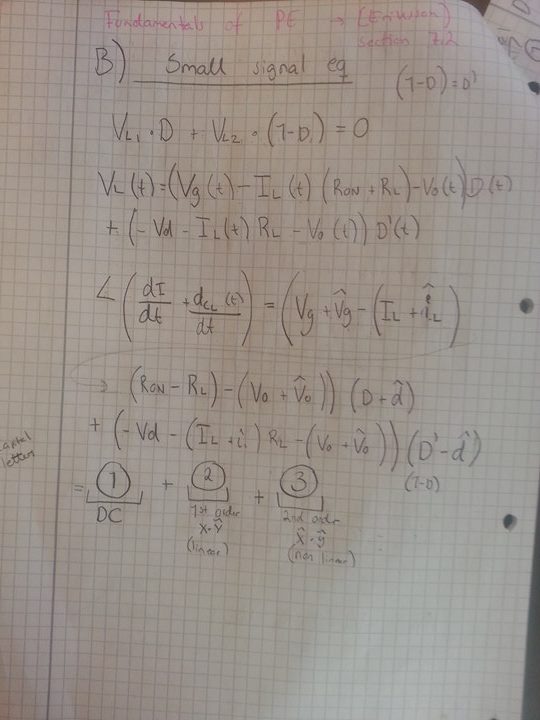 Fundamentals of PE → (Erikson)
section 7.2
B) Small signal eq
(1-D) = D'
VL1 · D + VL2 · (1-D) = 0
VL(t) = (Vg(t) - IL(t) (RON + RL) - Vo(t)) D(t)
+ (-Vd - IL(t) RL - Vo(t)) D'(t)
L (dI/dt + dîL(t)/dt) = (Vg + V̂g - (IL + îL)
→ (RON - RL) - (Vo + V̂o)) (D + d̂)
+ (-Vd - (IL + î) RL - (Vo + V̂o)) (D' - d̂)
letter
(1-D)
= 1 + 2 + 3
DC
1st order
X·Ŷ
(linear)
2nd order
X̂·ŷ
(non linear)